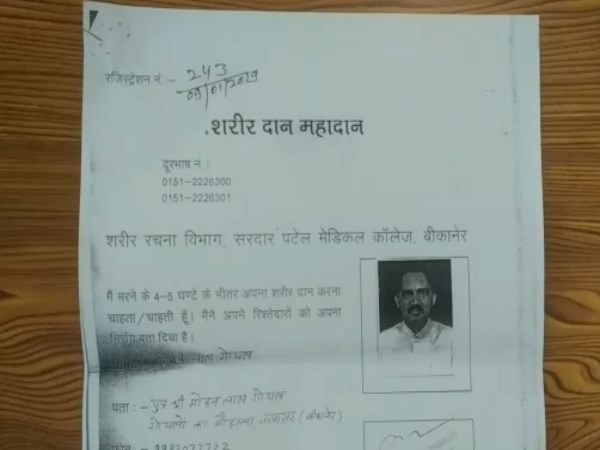 रजिस्ट्रेशन नं. :- 243
09/01/2019
शरीर दान महादान
दूरभाष नं. :
0151-2226300
0151-2226301
शरीर रचना विभाग, सरदार पटेल मेडिकल कॉलेज, बीकानेर
मैं मरने के 4-5 घण्टे के भीतर अपना शरीर दान करना
चाहता/चाहती हूँ। मैंने अपने रिश्तेदारों को अपना
निर्णय बता दिया है।
लाल
पता : - पुत्र श्री मोहन लाल
का मौहल्ला, (बीकानेर)